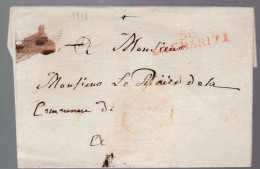 A Monsieur
56
CHARITE
Monsieur Le Maire de la
Commune de
A